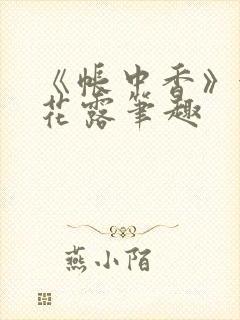 《帐中香》
花露笔趣
燕小陌